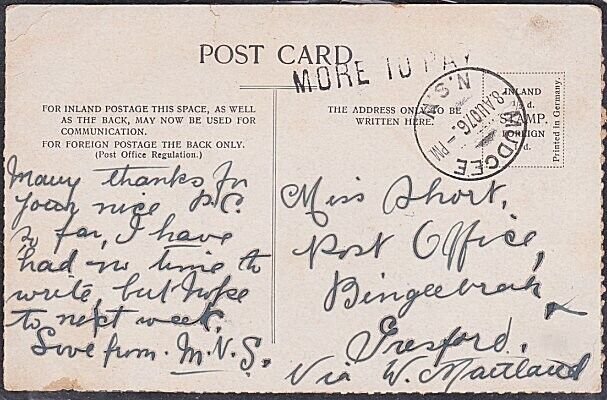 POST CARD
MORE TO PAY
FOR INLAND POSTAGE THIS SPACE, AS WELL
AS THE BACK, MAY NOW BE USED FOR
COMMUNICATION.
FOR FOREIGN POSTAGE THE BACK ONLY.
(Post Office Regulation.)
THE ADDRESS ONLY TO BE
WRITTEN HERE.
MUDGEE
N.S.W
8 AU 07 6 - PM
INLAND
d.
STAMP.
FOREIGN
d.
Printed in Germany.
Many thanks for
your nice P.C.
so far, I have
had no time to
write, but hope
to next week.
Love from. M.N.S.
Miss Short,
Post Office,
Bingeebrah
Gresford.
Via W. Maitland